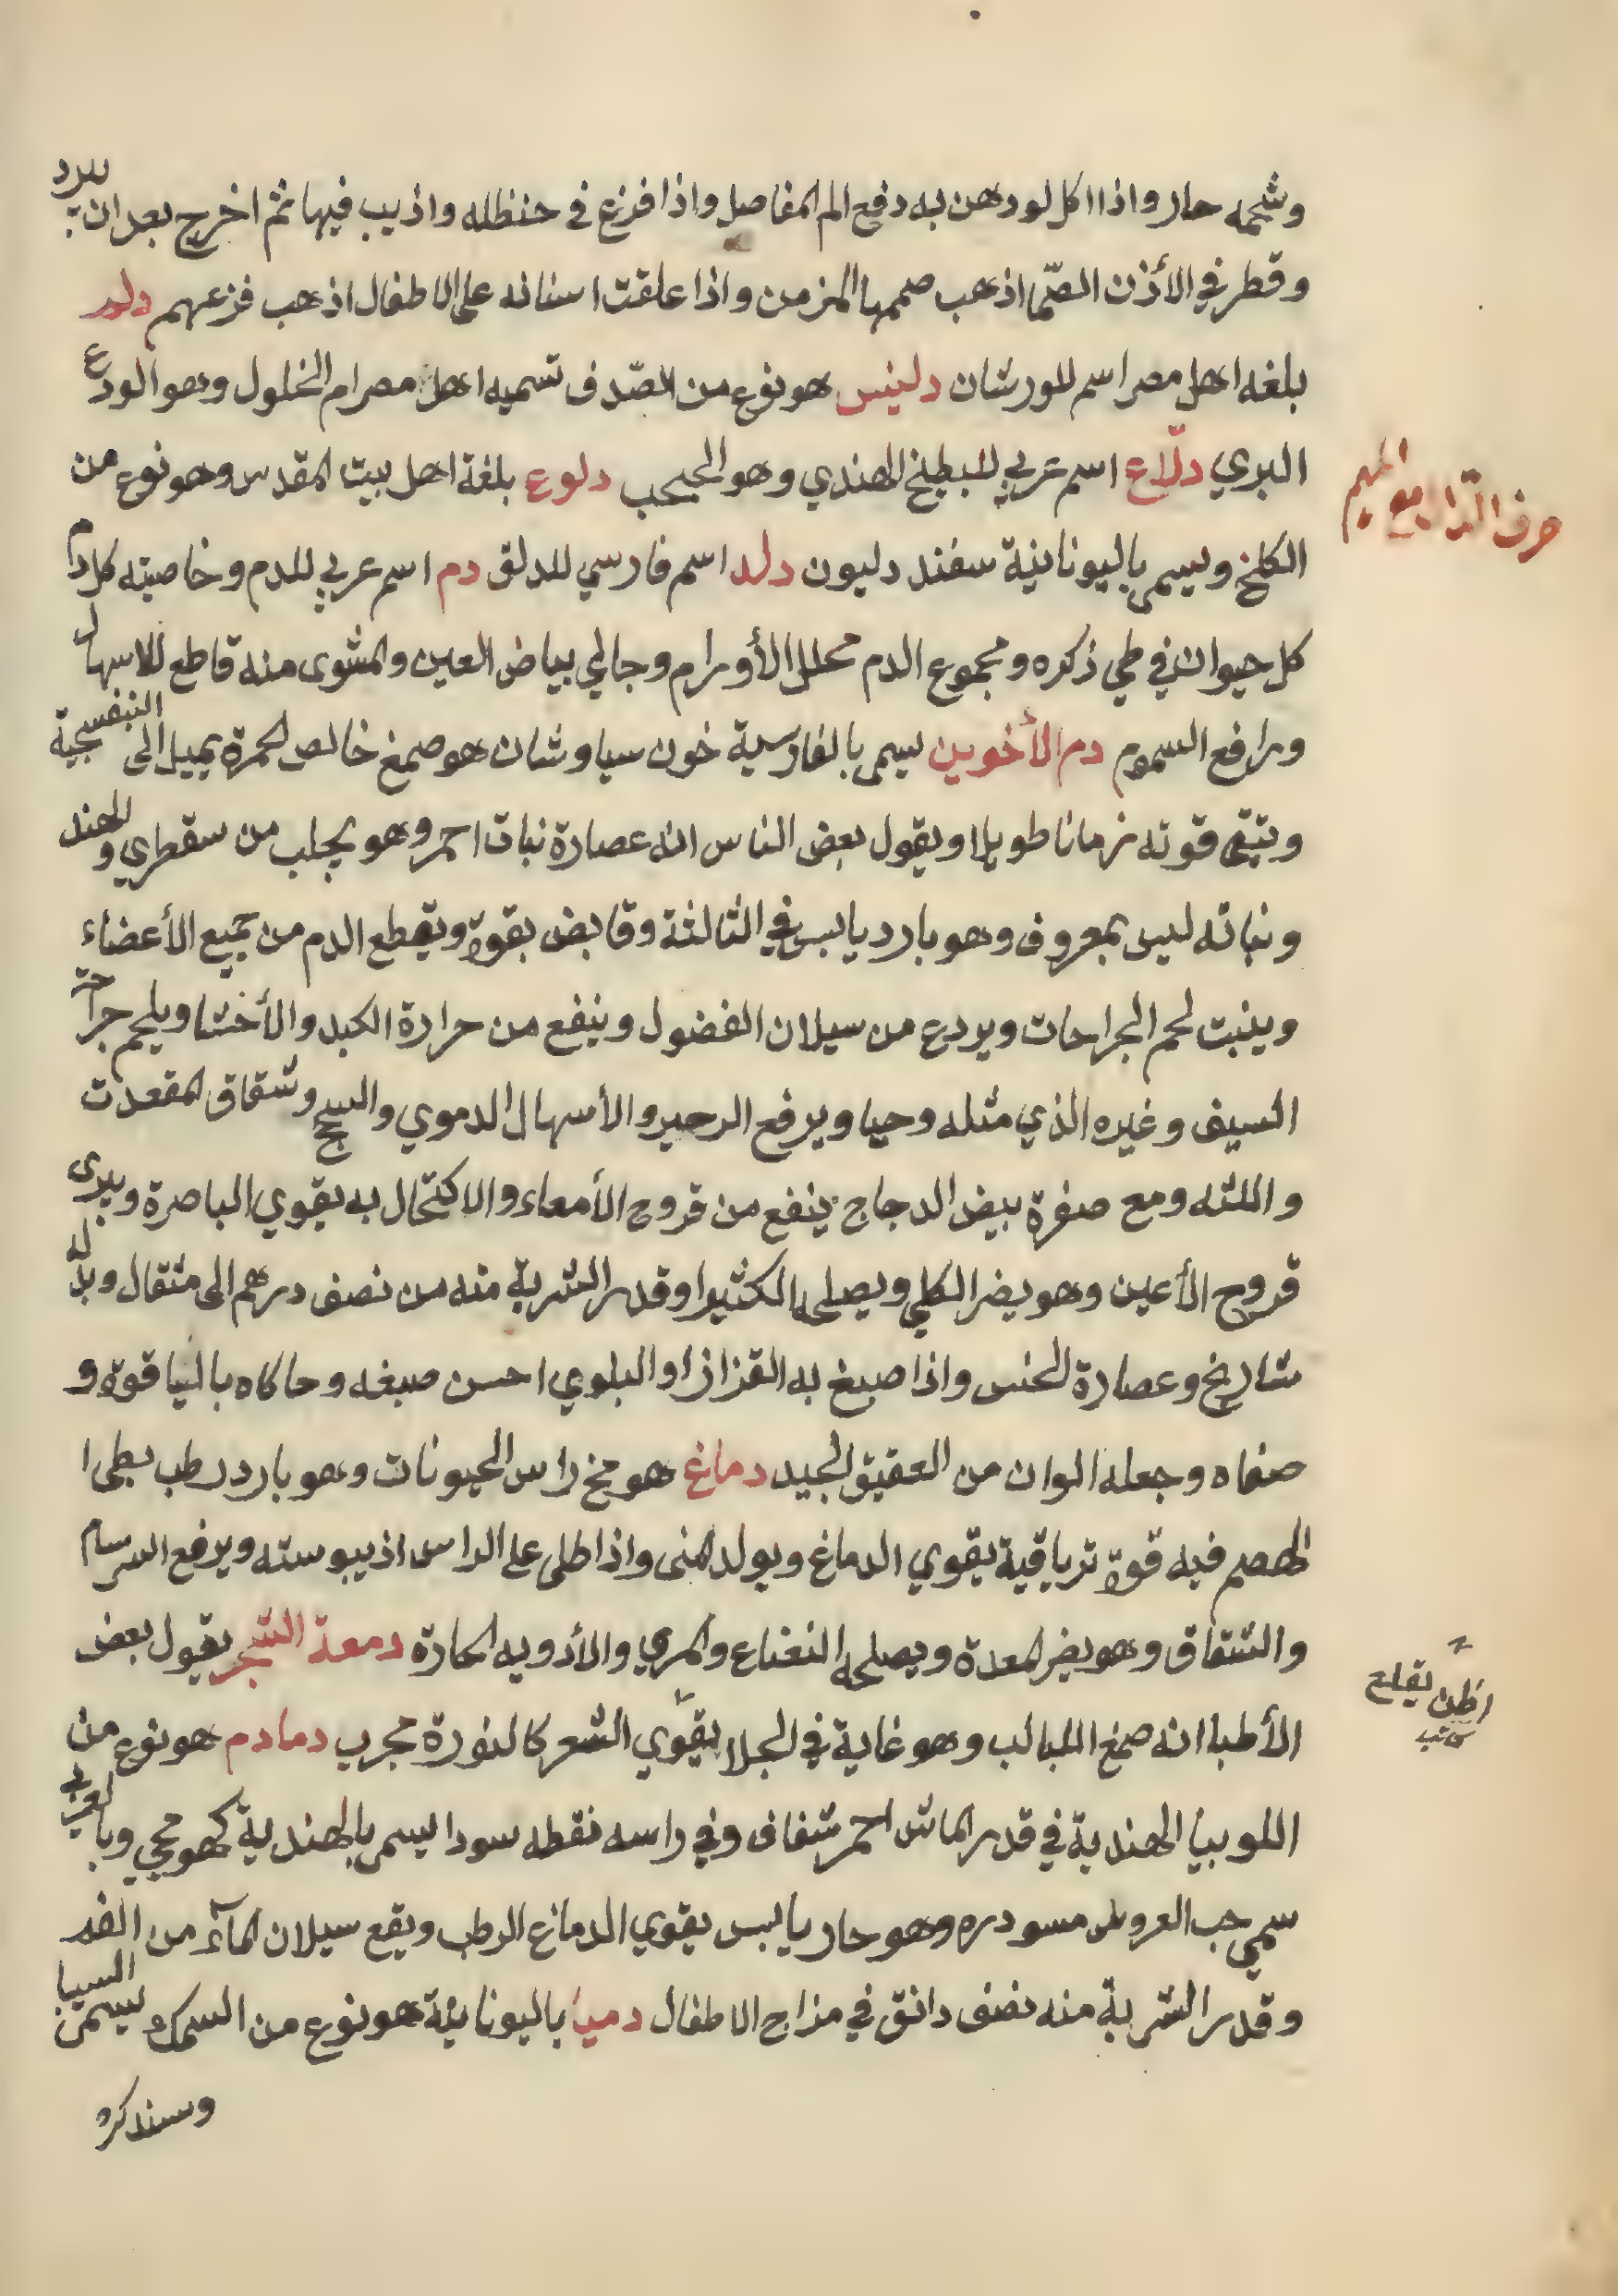 وشحمه حار واذا اكل لو دهن به دفع الم المفاصل واذا فزع في حنظله واذيب فيها ثم اخرج بعد ان يبرد
وقطر في الأذن الصّما اذهب صممها المزمن واذا علقت اسنانه على الاطفال اذهب فزعهم دلم
بلغه اهل مصر اسم للورشان دلينس هو نوع من الصّدف تسميه اهل مصر ام الخلول وهو الودع
البري دلّاع اسم عربي للبطيخ الهندي وهو الحبحب دلوع بلغة اهل بيت المقدس وهو نوع من
حرف الدّال مع الميم
الكلخ ويسمى باليونانية سفند دليون دله اسم فارسي للدلق دم اسم عربي للدم وخاصيته كل دم
كل حيوان في طي ذكره ومجموع الدم محلل الأورام وجالي بياض العين والمشوى منه قاطع للاسهال
ورافع السموم دم الأخوين يسمى بالفارسية خون سياوشان هو صمغ خالص الحمرة يميل الى البنفسجية
وتبقى قوته زمانا طويلا ويقول بعض الناس انه عصارة نبات احمر وهو يجلب من سقطري والهند
ونباته ليس بمعروف وهو بارد يابس في الثالثة وقابض بقوة ويقطع الدم من جميع الأعضاء
وينبت لحم الجراحات ويردع من سيلان الفضول وينفع من حرارة الكبد والأخشا ويلحم جراحة
السيف وغيره الذي مثله وحيا ويرفع الرحير والأسهال الدموي والسحج وشقاق المقعدت
واللثه ومع صفرة بيض الدجاج ينفع من قروح الأمعاء والاكتحال به يقوي الباصرة ويبرى
قروح الأعين وهو يضر الكلي ويصلحه الكثيرا وقدر الشربة منه من نصف درهم الى مثقال وبدله
شاريخ وعصارة الخس واذا صبغ به القزاز او البلوي احسن صبغه وحاكاه بالياقوة و
صفاه وجعله الوان من العقيق الجيد دماغ هو مخ راس الحيونات وهو بارد رطب بطى ا
الهصم فيه قوة ترياقية يقوي الدماغ ويولد المنى واذا طلى على الراس اذ يبوسته ويرفع السرسام
والشقاق وهو يضر المعدة ويصلحه النغناع والمري والأدويه الحارة دمعة الشجر يقول بعض
الأطبا انه صمغ اللبالب وهو غاية في الجلا يقوّي الشعر كالنورة مجرب دمادم هو نوع من
اظن يقلع
كاتب
اللوبيا الهندية في قدر الماش احمر شفاف وفي راسه نقطه سودا يسمى بالهندية كهومجي وبالعربي
سمي حب العروس مسودره وهو حار يابس يقوي الدماغ الرطب ويقع سيلان المآء من الفم
وقدر الشربة منه نصف دانق في مزاج الاطفال دميا باليونانية هو نوع من السمك يسمى السيبا
وسنذكره